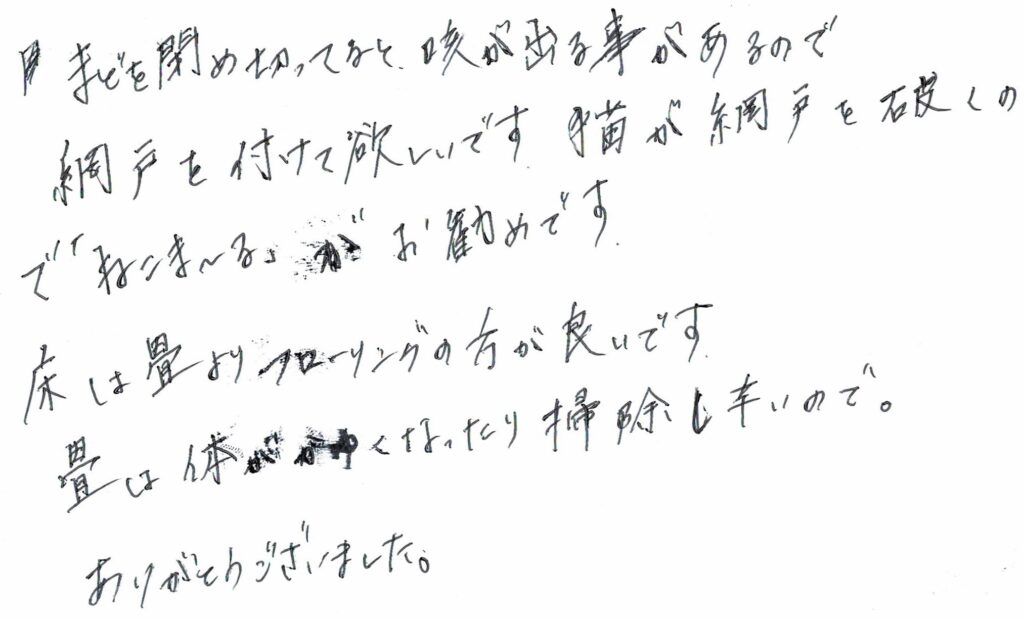 まどを閉め切ってなと、咳が出る事があるので
網戸を付けて欲しいです。猫が網戸を破くの
で「ねこま〜る」がお勧めです。
床は畳よりフローリングの方が良いです。
畳は体がかゆくなったり掃除し辛いので。
ありがとうございました。